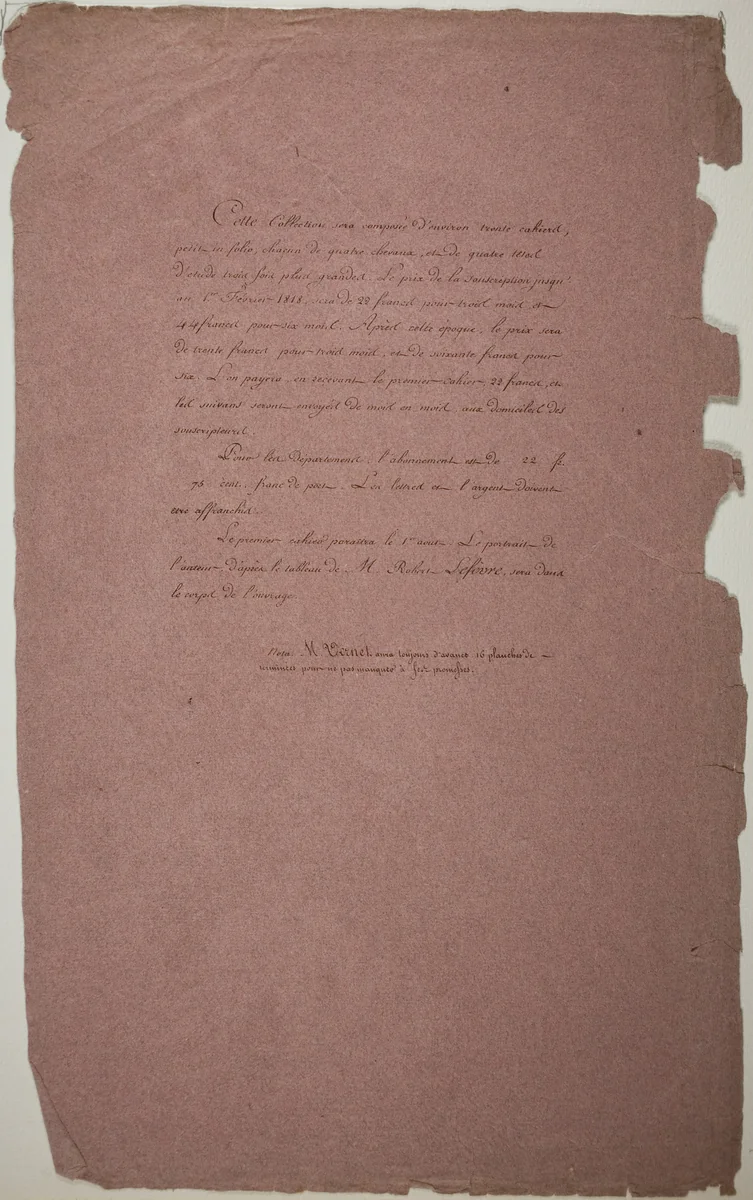 Cette Collection sera composée d'environ trente cahiers,
petit in folio, chacun de quatre chevaux, et de quatre têtes
d'étude trois fois plus grandes. Le prix de la souscription jusqu'
au 1er Février 1818, sera de 22 francs pour trois mois et
44 francs pour six mois. Après cette époque, le prix sera
de trente francs pour trois mois, et de soixante francs pour
six. L'on payera en recevant le premier cahier, 22 francs, et
les suivans seront envoyés de mois en mois aux domiciles des
souscripteurs.
Pour les Départemens, l'abonnement est de 22 fr.
75 cent. franc de port. Les lettres et l'argent doivent
être affranchis.
Le premier cahier paraîtra le 1er aout. Le portrait de
l'auteur d'après le tableau de M. Robert Lefèvre, sera dans
le corps de l'ouvrage.
Nota. M Vernet aura toujours d'avance 16 planches de
terminées pour ne pas manquer à ses promesses.